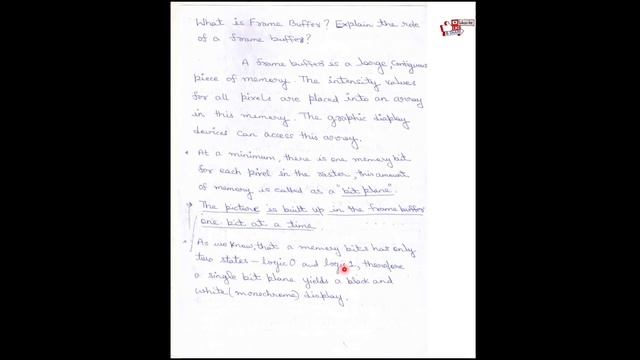 What is Frame Buffer? Explain the role
of a frame buffer?
A frame buffer is a large, contiguous
piece of memory. The intensity values
for all pixels are placed into an array
in this memory. The graphic display
devices can access this array.
At a minimum, there is one memory bit
for each pixel in the raster, this amount
of memory is called as a "bit plane".
The picture is built up in the frame buffer
one bit at a time.
As we know, that a memory bits has only
two states - logic 0 and logic 1, therefore
a single bit plane yields a black and
white (monochrome) display.